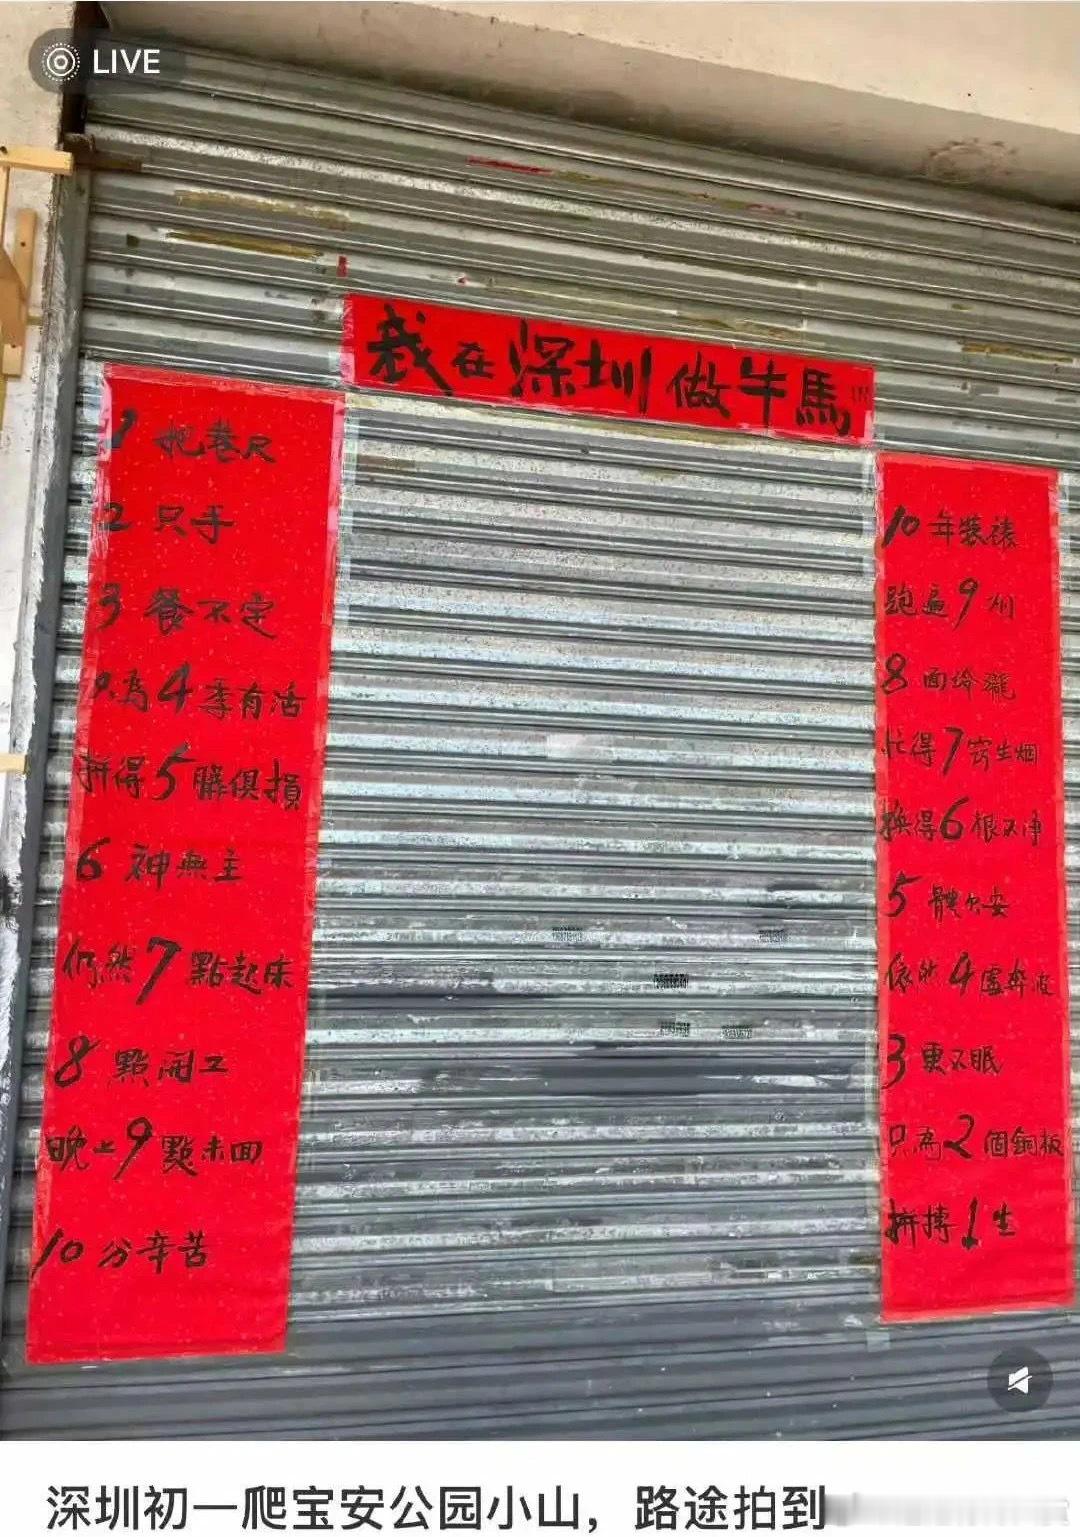 LIVE
我在深圳做牛馬
1把卷尺
2只手
3餐不定
只為4季有活
拼得5臟俱損
6神無主
仍然7點起床
8點開工
晚上9點未回
10分辛苦
10年裝裱
跑遍9州
8面玲瓏
忙得7窍生烟
換得6根不净
5體欠安
依然4處奔波
3更不眠
只為2個銅板
拼搏1生
深圳初一爬宝安公园小山，路途拍到